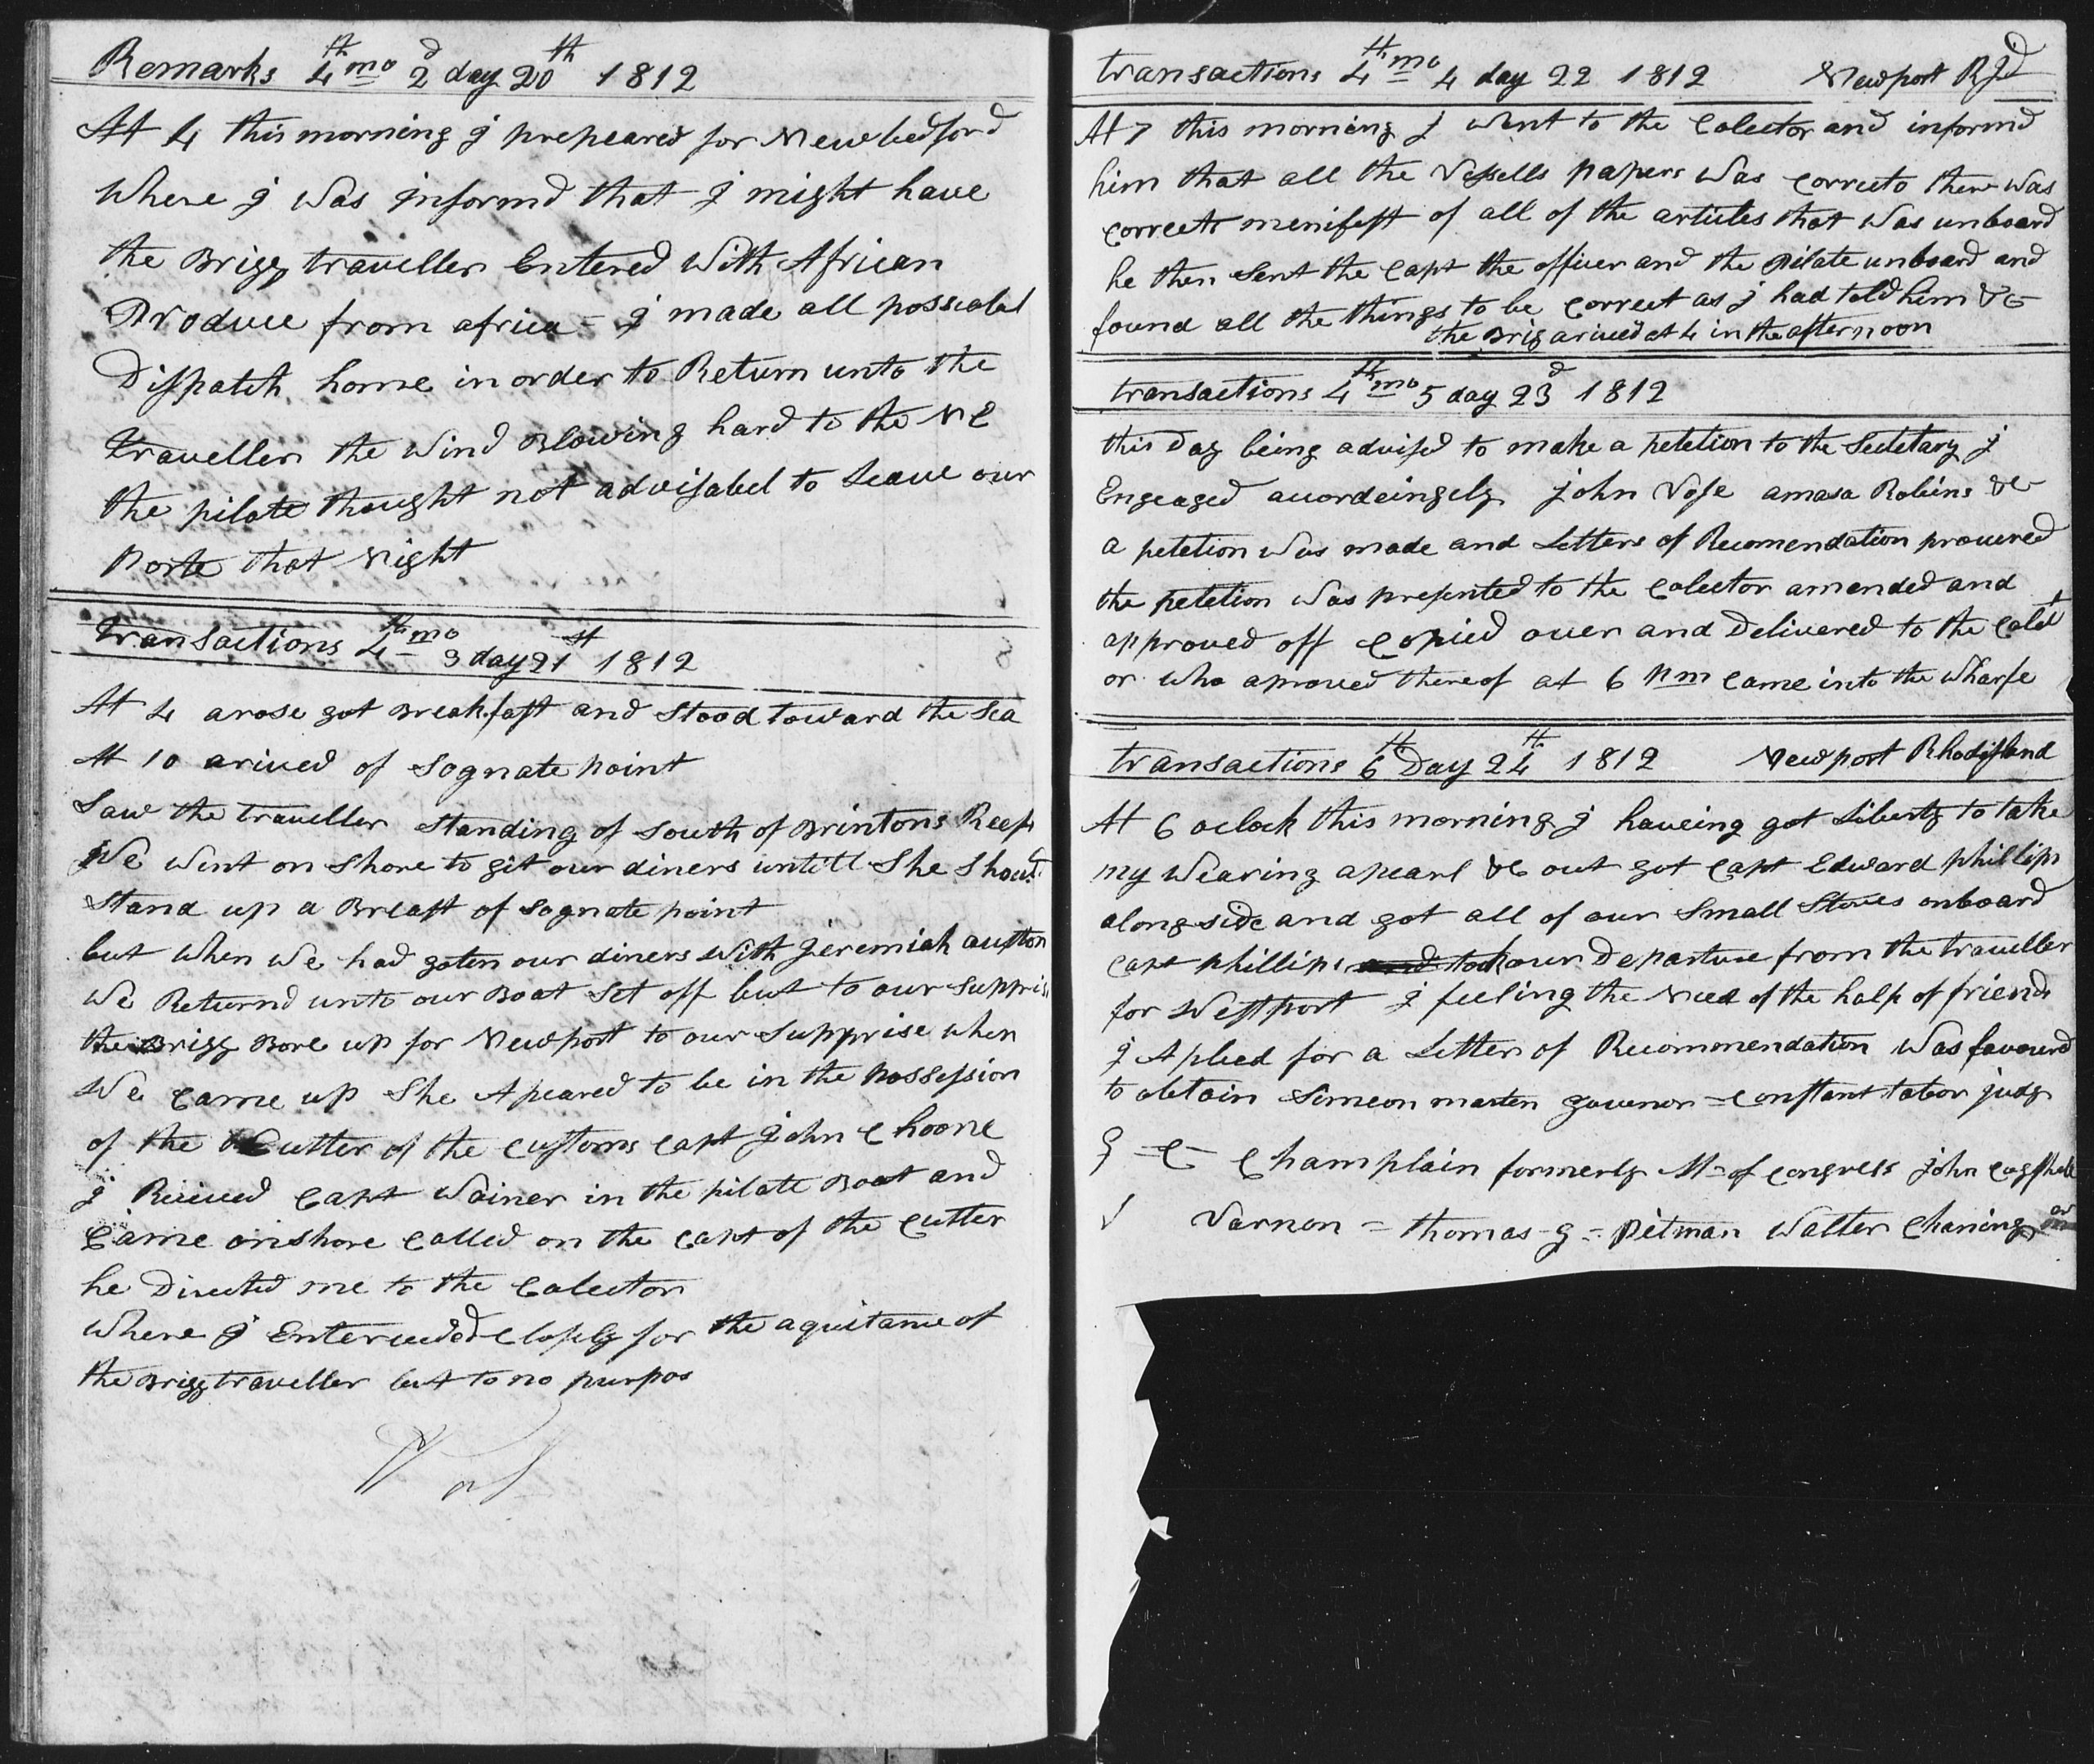 Remarks 4th mo 2d day 20th 1812
At 4 this morning j prepeared for Newbedford
Where j Was jnformd that j might have
the Brigg traveller Entered With African
Produce from africa = j made all possiabel
Dispatch home in order to Return unto the
Traveller the Wind Blowing hard to the NE
the pilote thought not advisabel to Leave our
Porte that Night
transactions 4th mo 3 day 21st 1812
At 4 arose got Breakfast and Stood toward the Sea
At 10 arived of Sognate point
Saw the traveller Standing of South of Brintons Reef
We Went on Shore to git our diners untill She Shoud
Stand up a Breast of Sognate point
but When We had goten our diners With jeremiah austton
We Returnd unto our Boat Set off but to our Suppris
the Brigg Bore up for Newport to our Supprise when
We Came up She Apeared to be in the Possession
of the Cutter of the Customs Capt john Choone
j Recived Capt Wainer in the pilate Boat and
Came onshore Called on the Capt of the Cutter
he Directed me to the Colector
Where j Enterceded Closely for the aquitance of
the Brigg traveller but to no purpos
transactions 4th mo 4 day 22 1812 Newport RJd
At 7 this morning j Went to the Colector and informd
him that all the Vessells papers Was Correcto ther Was
Correcte menifest of all of the articles that Was unboard
he then Sent the Capt the officer and the Pilate unboard and
found all the things to be Correct as j had told him &c
the Brig arived at 4 in the afternoon
transactions 4th mo 5 day 23d 1812
this Day being advised to make a petetion to the Secletary j
Engeaged accordeingely john Vose amasa Robins &c
a petetion Was made and Letters of Recomendation procured
the petetion Was presented to the Colector amended and
approved off Copied over and Delivered to the Colet
or Who aproved thereof at 6 Pm Came into the Wharfe
transactions 6th Day 24th 1812 Newport Rhodisland
At 6 oclock this morning j haveing got Liberty to take
my Wearing apearl &c out got Capt Edward phillips
along side and got all of our Small Stores onboard
Capt phillips and took our Departure from the traveller
for Westport j feeling the Need of the halp of friends
j Aplied for a Letter of Recommendation Was favourd
to obtain Simeon marten governor = Constant tabor judg
G = C Champlain formerly M= of Congress john Cogshell
Varnon = thomas = g = Pitman Walter Chaning